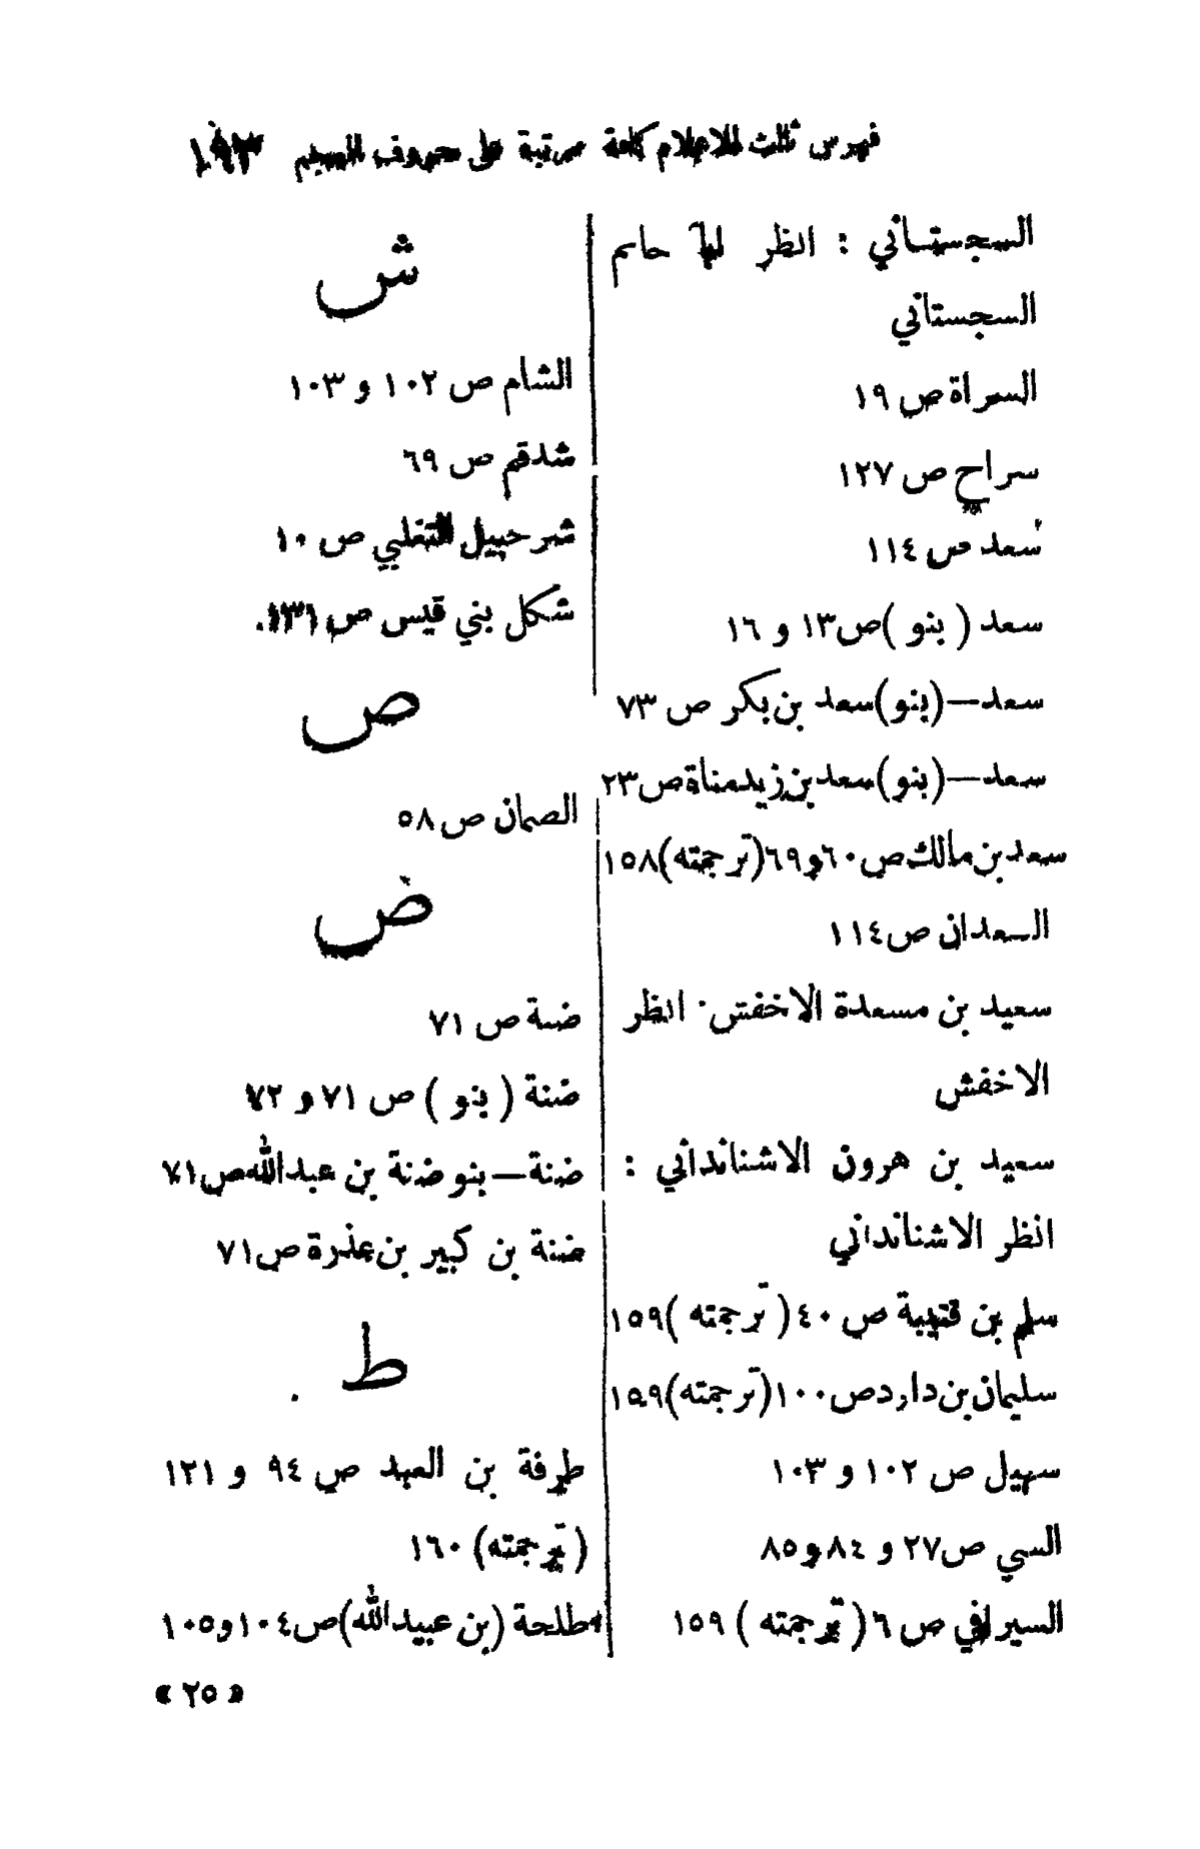 فهرس ثالث للاعلام كافة مرتبة على حروف المعجم ١٩٣
السجستاني : انظر ابا حاتم
السجستاني
السراة ص ١٩
سراج ص ١٢٧
سعد ص ١١٤
سعد ( بنو ) ص ١٣ و ١٦
سعد — (بنو) سعد بن بكر ص ٧٣
سعد — (بنو) سعد بن زيد مناة ص ٢٣
سعد بن مالك ص ٦٠ و ٦٩ (ترجمته) ١٥٨
السعدان ص ١١٤
سعيد بن مسعدة الاخفش . انظر
الاخفش
سعيد بن هرون الاشنانداني :
انظر الاشنانداني
سلم بن قتيبة ص ٤٠ ( ترجمته ) ١٥٩
سليمان بن داود ص ١٠٠ (ترجمته) ١٥٩
سهيل ص ١٠٢ و ١٠٣
السي ص ٢٧ و ٨٤ و ٨٥
السيرافي ص ٦ ( ترجمته ) ١٥٩
ش
الشام ص ١٠٢ و ١٠٣
شدقم ص ٦٩
شرحبيل التغلبي ص ١٠
شكل بني قيس ص ١٣١
ص
الصمان ص ٥٨
ض
ضنة ص ٧١
ضنة ( بنو ) ص ٧١ و ٧٢
ضنة — بنو ضنة بن عبد الله ص ٧١
ضنة بن كبير بن عذرة ص ٧١
ط
طرفة بن العبد ص ٩٤ و ١٢١
( ترجمته ) ١٦٠
طلحة (بن عبيد الله) ص ١٠٤ و ١٠٥
« ٢٥ »